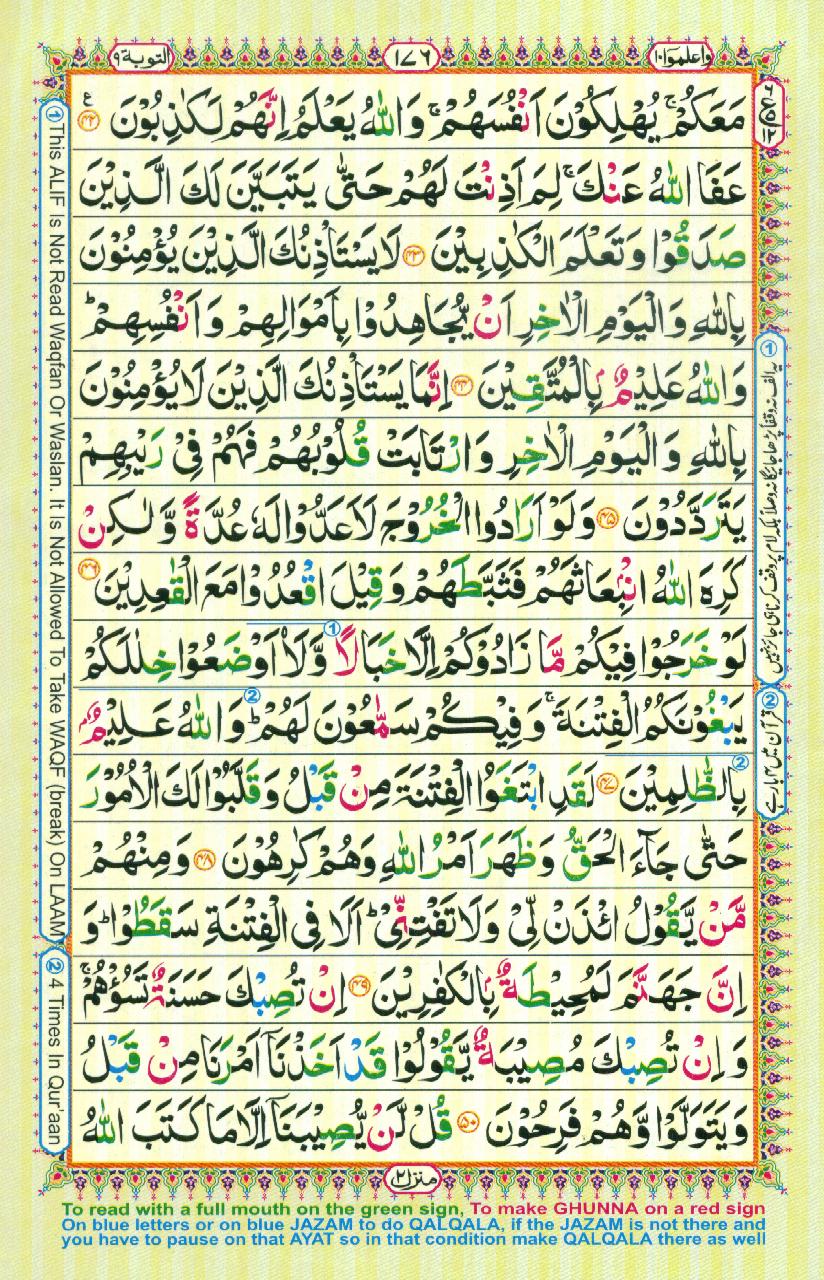 التوبة ٩
١٧٦
واعلموا ١٠
مَعَكُمْ ۚ يُهْلِكُوْنَ اَنْفُسَهُمْ ۚ وَاللّٰهُ يَعْلَمُ اِنَّهُمْ لَكٰذِبُوْنَ ﴿٤٢﴾ ع
عَفَا اللّٰهُ عَنْكَ ۚ لِمَ اَذِنْتَ لَهُمْ حَتّٰى يَتَبَيَّنَ لَكَ الَّذِيْنَ
صَدَقُوْا وَتَعْلَمَ الْكٰذِبِيْنَ ﴿٤٣﴾ لَا يَسْتَاْذِنُكَ الَّذِيْنَ يُؤْمِنُوْنَ
بِاللّٰهِ وَالْيَوْمِ الْاٰخِرِ اَنْ يُّجَاهِدُوْا بِاَمْوَالِهِمْ وَاَنْفُسِهِمْ ؕ
وَاللّٰهُ عَلِيْمٌۢ بِالْمُتَّقِيْنَ ﴿٤٤﴾ اِنَّمَا يَسْتَاْذِنُكَ الَّذِيْنَ لَا يُؤْمِنُوْنَ
بِاللّٰهِ وَالْيَوْمِ الْاٰخِرِ وَارْتَابَتْ قُلُوْبُهُمْ فَهُمْ فِيْ رَيْبِهِمْ
يَتَرَدَّدُوْنَ ﴿٤٥﴾ وَلَوْ اَرَادُوا الْخُرُوْجَ لَاَعَدُّوْا لَهٗ عُدَّةً وَّلٰكِنْ
كَرِهَ اللّٰهُ انْۢبِعَاثَهُمْ فَثَبَّطَهُمْ وَقِيْلَ اقْعُدُوْا مَعَ الْقٰعِدِيْنَ ﴿٤٦﴾
لَوْ خَرَجُوْا فِيْكُمْ مَّا زَادُوْكُمْ اِلَّا خَبَالًا ① وَّلَا۟اَوْضَعُوْا خِلٰلَكُمْ
يَبْغُوْنَكُمُ الْفِتْنَةَ ۚ ② وَفِيْكُمْ سَمّٰعُوْنَ لَهُمْ ؕ وَاللّٰهُ عَلِيْمٌۢ
بِالظّٰلِمِيْنَ ﴿٤٧﴾ لَقَدِ ابْتَغَوُا الْفِتْنَةَ مِنْ قَبْلُ وَقَلَّبُوْا لَكَ الْاُمُوْرَ ②
حَتّٰى جَآءَ الْحَقُّ وَظَهَرَ اَمْرُ اللّٰهِ وَهُمْ كٰرِهُوْنَ ﴿٤٨﴾ وَمِنْهُمْ
مَّنْ يَّقُوْلُ ائْذَنْ لِّيْ وَلَا تَفْتِنِّيْ ؕ اَلَا فِى الْفِتْنَةِ سَقَطُوْا ؕ وَ
اِنَّ جَهَنَّمَ لَمُحِيْطَةٌۢ بِالْكٰفِرِيْنَ ﴿٤٩﴾ اِنْ تُصِبْكَ حَسَنَةٌ تَسُؤْهُمْ ۚ
وَاِنْ تُصِبْكَ مُصِيْبَةٌ يَّقُوْلُوْا قَدْ اَخَذْنَاۤ اَمْرَنَا مِنْ قَبْلُ
وَيَتَوَلَّوْا وَّهُمْ فَرِحُوْنَ ﴿٥٠﴾ قُلْ لَّنْ يُّصِيْبَنَاۤ اِلَّا مَا كَتَبَ اللّٰهُ
منزل ٢
① This ALIF Is Not Read Waqfan Or Waslan. It Is Not Allowed To Take WAQF (break) On LAAM
② 4 Times In Qur'aan
② قرآن میں ۴ بار ہے
To read with a full mouth on the green sign, To make GHUNNA on a red sign
On blue letters or on blue JAZAM to do QALQALA, if the JAZAM is not there and
you have to pause on that AYAT so in that condition make QALQALA there as well